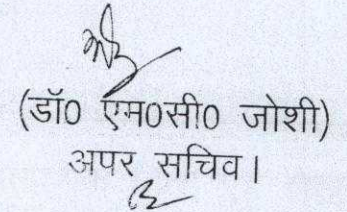 (डॉ0 एम0सी0 जोशी)
अपर सचिव।